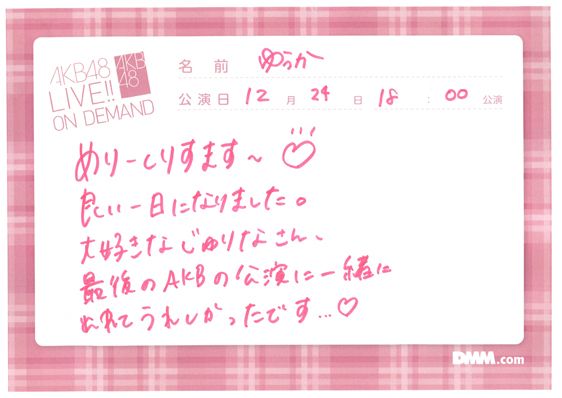 AKB48
LIVE!!
ON DEMAND
AKB
48
名前 ゆうか
公演日 12 月 24 日 18 : 00 公演
めりーくりすます～♡
良い一日になりました。
大好きなじゅりなさん、
最後のAKBの公演に一緒に
出れてうれしかったです...♡
DMM.com